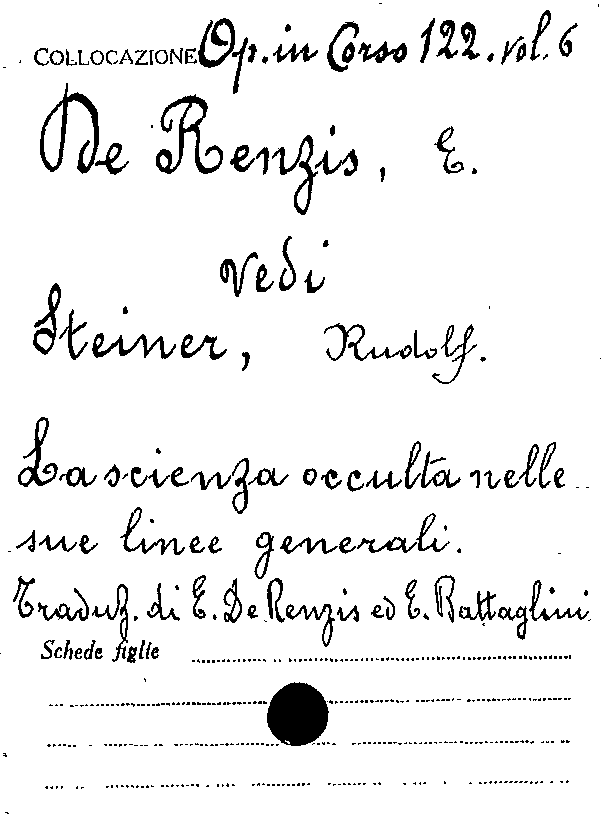 COLLOCAZIONE Op. in Corso 122. vol. 6
De Renzis, E.
vedi
Steiner, Rudolf.
La scienza occulta nelle
sue linee generali.
Traduz. di E. De Renzis ed E. Battaglini
Schede figlie